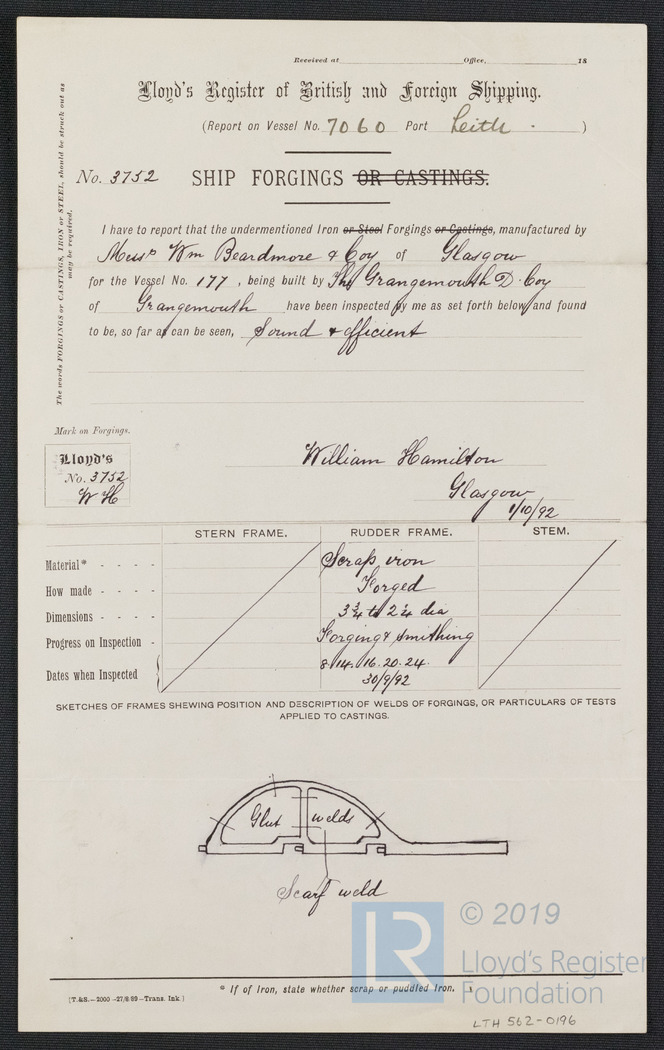 Received at Office, 18
Lloyd's Register of British and Foreign Shipping.
(Report on Vessel No. 7060 Port Leith . )
No. 3752 SHIP FORGINGS OR CASTINGS.
The words FORGINGS or CASTINGS, IRON or STEEL, should be struck out as
may be required.
I have to report that the undermentioned Iron or Steel Forgings or Castings, manufactured by
Messrs Wm Beardmore & Coy of Glasgow
for the Vessel No. 177, being built by The Grangemouth D. Coy
of Grangemouth have been inspected by me as set forth below and found
to be, so far as can be seen, Sound & efficient
Mark on Forgings.
Lloyd's
No. 3752
W H
William Hamilton
Glasgow
1/10/92
STERN FRAME. RUDDER FRAME. STEM.
Material* - - - - Scrap iron
How made - - - - Forged
Dimensions - - - - 3¾ to 2¼ dia
Progress on Inspection - Forging & smithing
Dates when Inspected 8.14.16.20.24.
30/9/92
SKETCHES OF FRAMES SHEWING POSITION AND DESCRIPTION OF WELDS OF FORGINGS, OR PARTICULARS OF TESTS
APPLIED TO CASTINGS.
Glut welds
Scarf weld
* If of Iron, state whether scrap or puddled Iron.
[T.&S.—2000—27/8/89—Trans. Ink.]
LR © 2019
Lloyd's Register
Foundation
LTH 562-0196